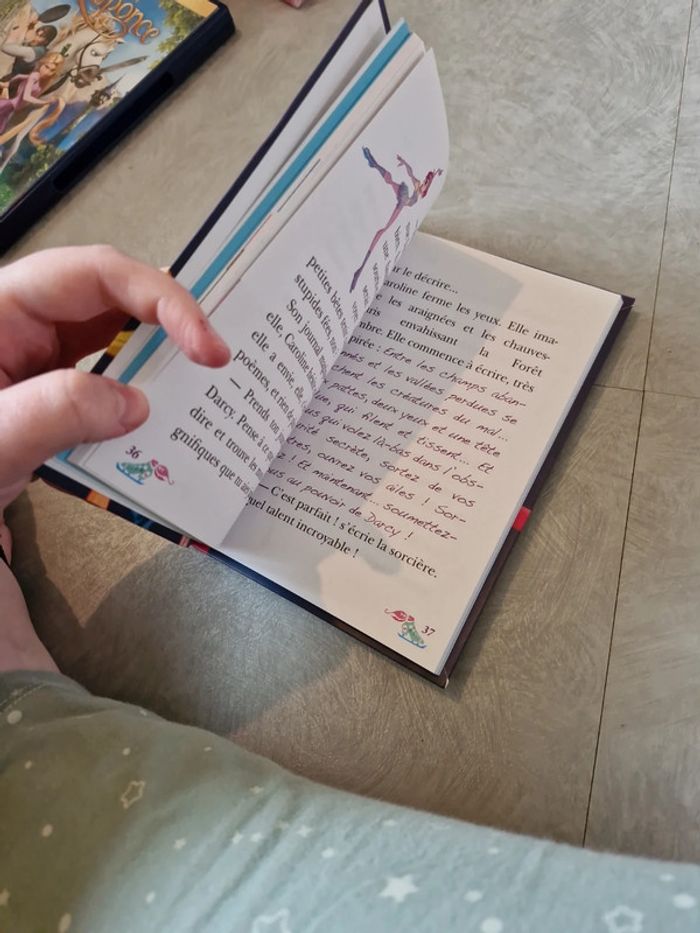 petites bêtes
stupides fées
Son journal
elle, Caroline
elle a envie, elle
poèmes, et rien
— Prends ton
Darcy. Pense à
dire et trouve les
gnifiques que tu
36
le décrire...
aroline ferme les yeux. Elle ima-
les araignées et les chauves-
ris envahissant la Forêt
mbre. Elle commence à écrire, très
pirée : Entre les champs aban-
nnés et les vallées perdues se
chent les créatures du mal...
pattes, deux yeux et une tête
ue, qui filent et tissent... Et
us qui volez là-bas dans l'obs-
urité secrète, sortez de vos
tres, ouvrez vos ailes ! Sor-
z ! Et maintenant, soumettez-
us au pouvoir de Darcy !
C'est parfait ! s'écrie la sorcière.
uel talent incroyable !
37